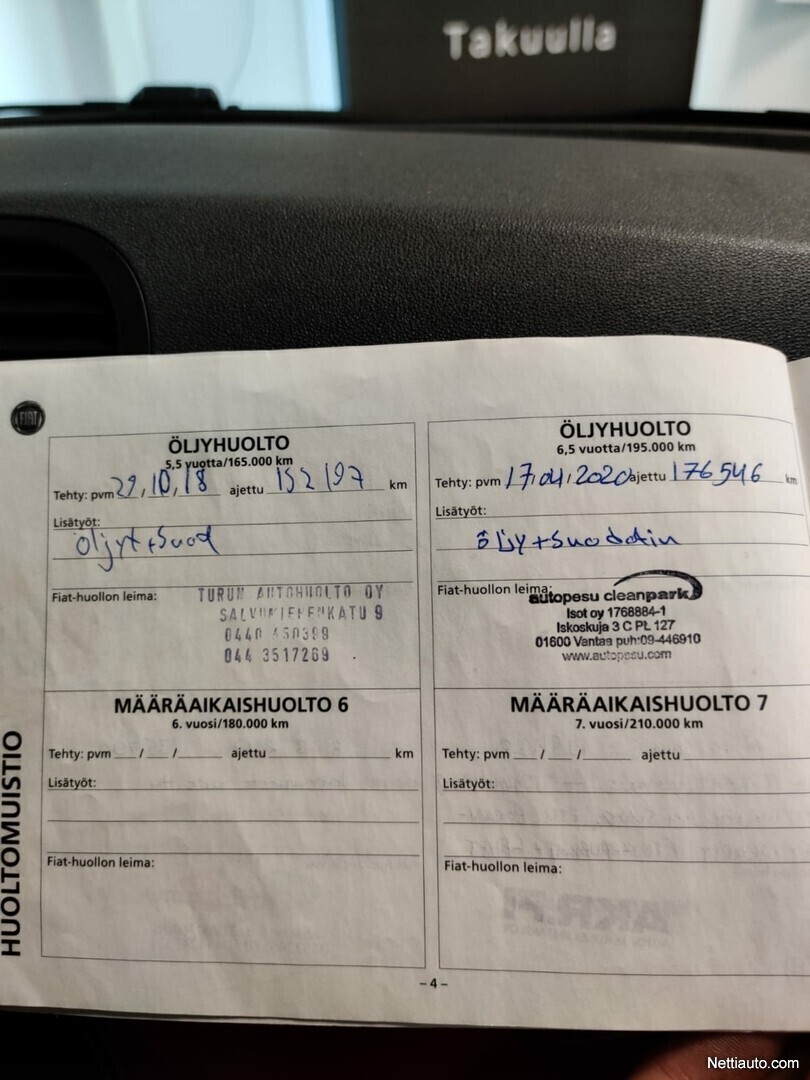 Takuulla
FIAT
ÖLJYHUOLTO
5,5 vuotta/165.000 km
Tehty: pvm 29,10,18 ajettu 152197 km
Lisätyöt:
Öljyt+suod
Fiat-huollon leima:
TURUN AUTOHUOLTO OY
9
0440 450399
044 3517269
ÖLJYHUOLTO
6,5 vuotta/195.000 km
Tehty: pvm 17/04/2020 ajettu 176546 km
Lisätyöt:
öljy+suodatin
Fiat-huollon leima:
autopesu cleanpark
Isot oy 1768884-1
Iskoskuja 3 C PL 127
01600 Vantaa puh:09-446910
www.autopesu.com
MÄÄRÄAIKAISHUOLTO 6
6. vuosi/180.000 km
Tehty: pvm ___/___/_____ ajettu ________________ km
Lisätyöt:
Fiat-huollon leima:
MÄÄRÄAIKAISHUOLTO 7
7. vuosi/210.000 km
Tehty: pvm ___/___/_____ ajettu ________________
Lisätyöt:
Fiat-huollon leima:
HUOLTOMUISTIO
– 4 –
Nettiauto.com